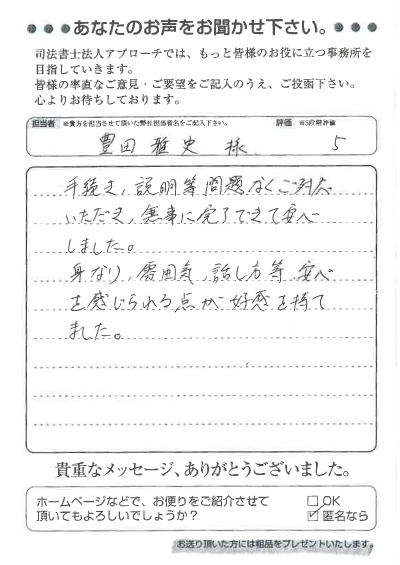 ●●●●あなたのお声をお聞かせ下さい。●●●●
司法書士法人アプローチでは、もっと皆様のお役に立つ事務所を
目指していきます。
皆様の率直なご意見・ご要望をご記入のうえ、ご投函下さい。
心よりお待ちしております。
担当者 ※貴方を担当させて頂いた弊社担当者名をご記入下さい。 評価 ※5段階評価
豊田 雅史 様 5
手続き、説明等問題なくご対応
いただき、無事に完了できて安心
しました。
身なり、雰囲気、話し方等 安心
を感じられる点が好感を持て
ました。
貴重なメッセージ、ありがとうございました。
ホームページなどで、お便りをご紹介させて
頂いてもよろしいでしょうか？
□ OK
☑ 匿名なら
お送り頂いた方には粗品をプレゼントいたします。